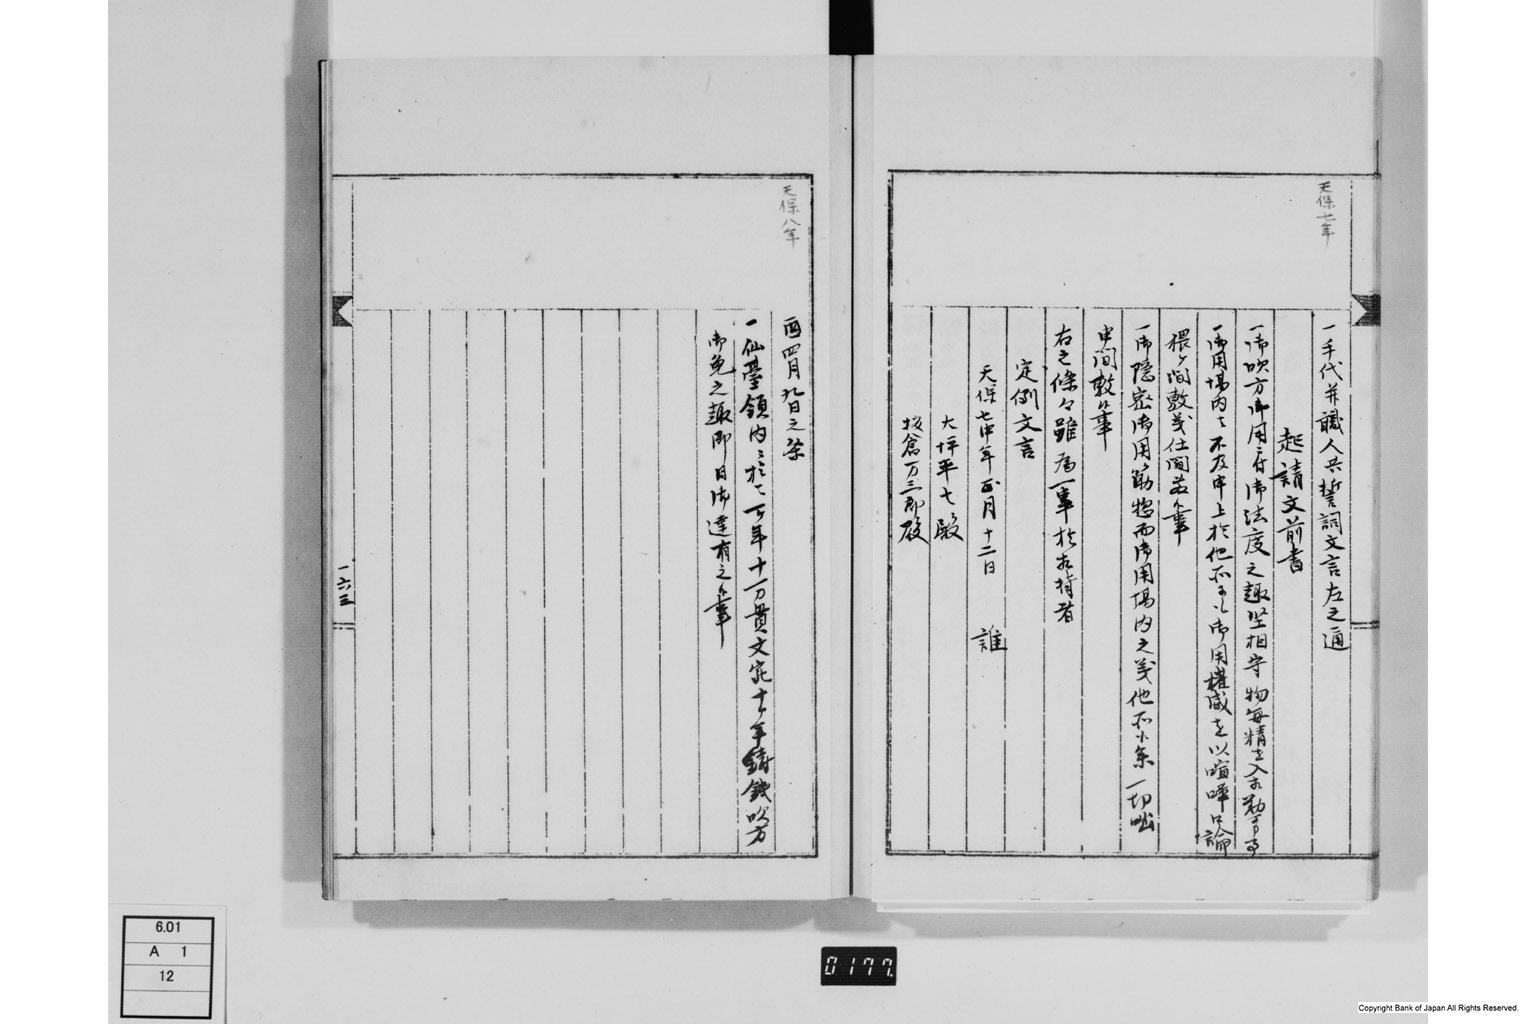 天保七年
一手代并職人共誓詞文言左之通
起請文前書
一御吹方御用ニ付御法度之趣堅相守物毎精を入相勤可申事
一御用場内之不及申上於他不可以御用權威を以喧嘩口論
間敷義仕間敷事
一御隠密御用筋惣而御用場内之義他不 一切
申間敷候事
右之條々雖為一事於相背者
定例文言
天保七申年正月十二日 誰
大坪平七殿
板倉万三郎殿
天保八年
酉四月九日之条
一仙臺領内ニ於て一ケ年十一万貫文宛十ケ年鋳銭吹方
御免之趣即日御達有之候事
一六三
6.01
A 1
12
0177.
Copyright Bank of Japan All Rights Reserved.